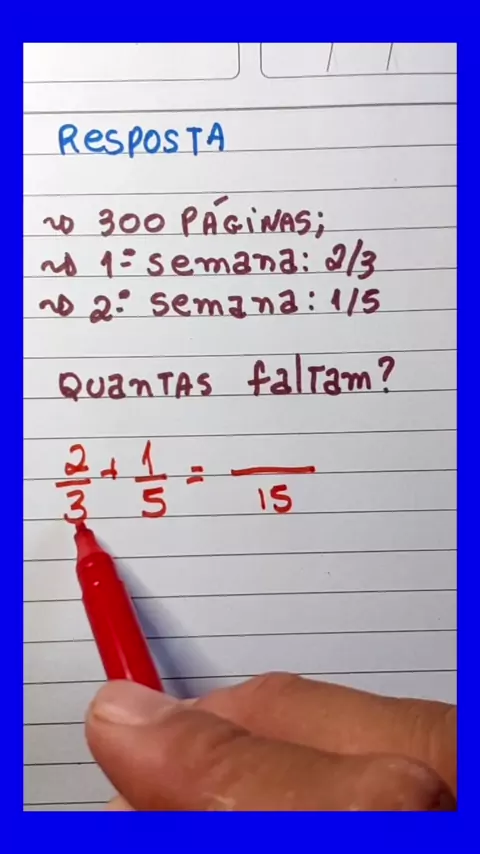 RESPOSTA
~> 300 PÁGINAS;
~> 1ª semana: 2/3
~> 2ª semana: 1/5
QUANTAS faltam?
2/3 + 1/5 = __/15